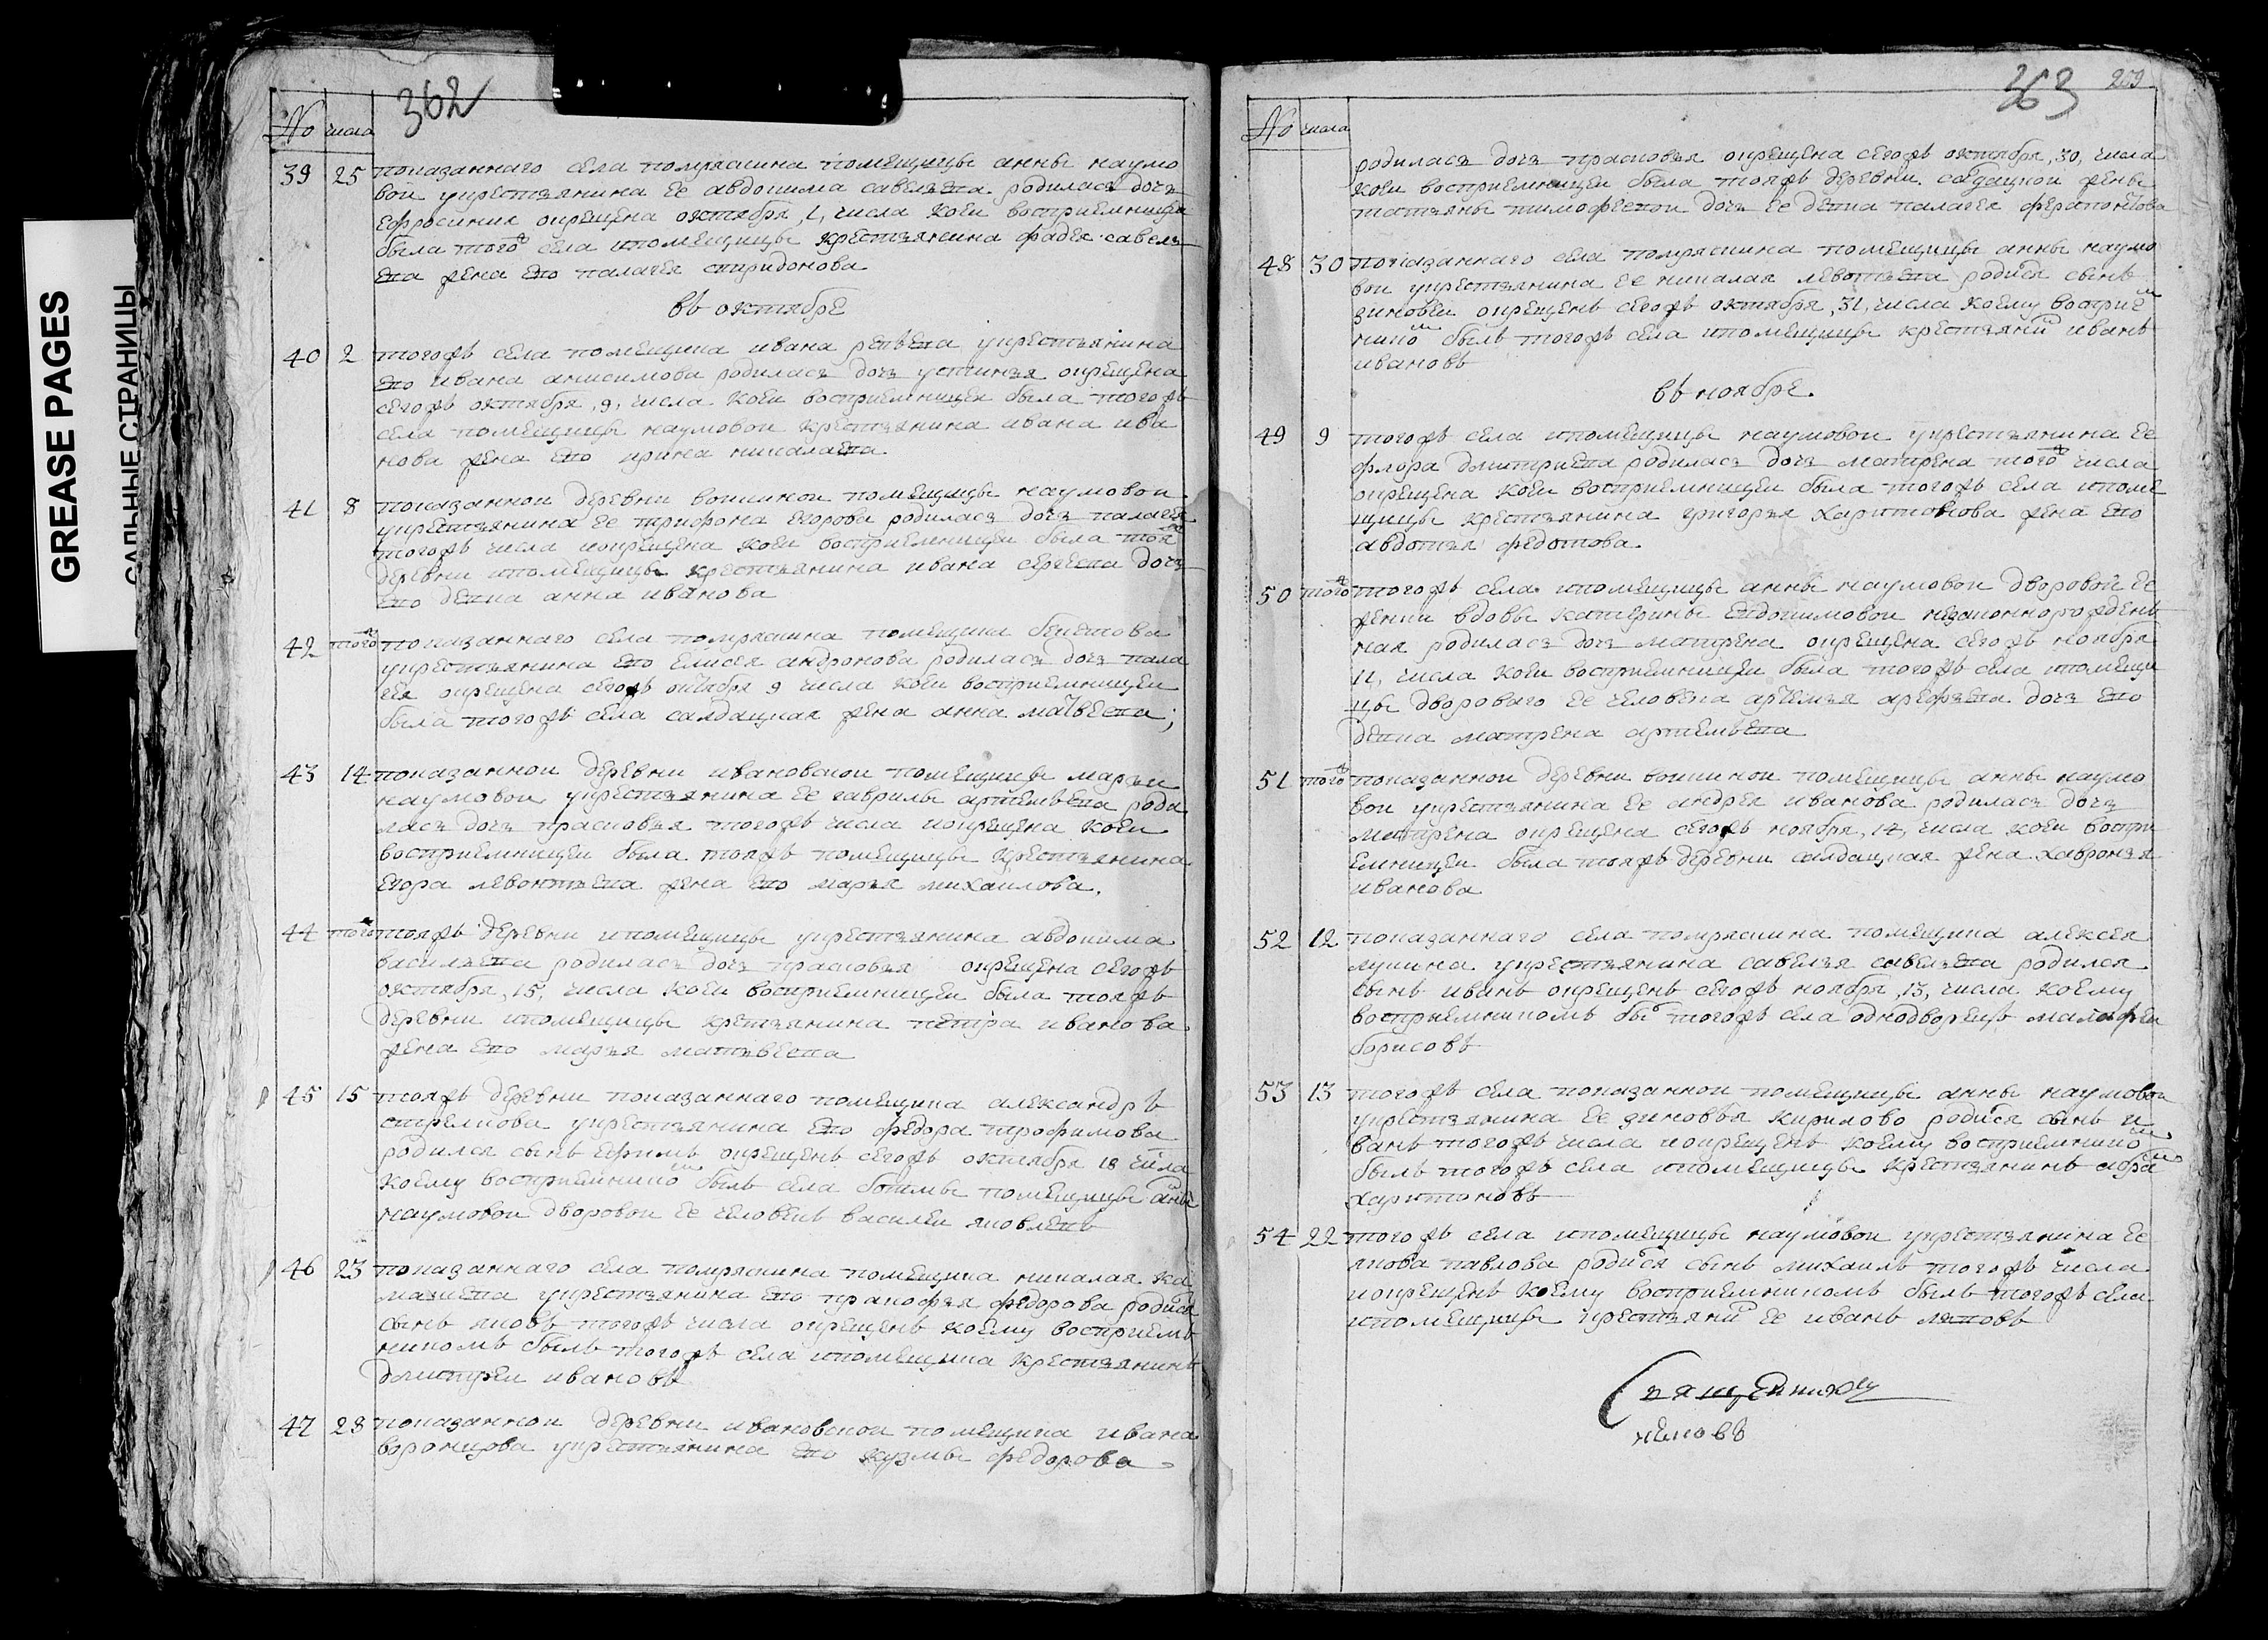 GREASE PAGES
САЛЬНЫЕ СТРАНИЦЫ
362
№ числа
39 25 показаннаго села помряскина помещицы анны наумо
вои укрестьянина ее авдокима савельева родилась дочь
Ефросиния окрещена октября, 1, числа коеи восприемницеи
была того ж села ипомещицы крестьянина фадея савель
ева жена ево палагея спиридонова
въ октябре
40 2 тогожъ села помещика ивана укрестьянина
ево ивана анисимова родилась дочь устинья окрещена
сегожъ октября, 9, числа коеи восприемницеи была тогожъ
села помещицы наумовои крестьянина ивана ива
нова жена ево ирина никалаева
41 8 показаннои деревни помещицы наумовои
укрестьянина ее трифона егорова родилась дочь палагея
тогожъ числа иокрещена коеи восприемницеи была тоя ж
деревни ипомещицы крестьянина ивана сергеева дочь
ево девка анна иванова
42 того ж показаннаго села помряскина помещика бекетова
укрестьянина ево елисея андронова родилась дочь пала
гея окрещена сегожъ октября 9 числа коеи восприемницеи
была тогожъ села салдацкая жена анна матвеева;
43 14 показаннои деревни ивановскои помещицы марьи
наумовои укрестьянина ее гаврилы артемьева роди
лась дочь прасковья тогожъ числа иокрещена коеи
восприемницеи была тояжъ помещицы крестьянина
егора левонтьева жена ево марья михаилова,
44 того ж тояжъ деревни ипомещицы укрестьянина авдокима
васильева родилась дочь прасковья окрещена сегожъ
октября, 15, числа коеи восприемницеи была тояжъ
деревни ипомещицы крестьянина петра иванова
жена ево марья матьвеева
45 15 тояжъ деревни показаннаго помещика александръ
стрелкова укрестьянина ево федора трофимова
родился сынъ ефимъ окрещенъ сегожъ октября 18 числа
коему восприемником былъ села помещицы анны
наумовои дворовои ее человекъ василеи яковлевъ
46 23 показаннаго села помряскина помещика никалая ка
укрестьянина ево пракофья федорова родися
сынъ яковъ тогожъ числа окрещенъ коему восприемъ
никомъ былъ тогожъ села ипомещика крестьянинъ
дмитреи ивановъ
47 28 показаннои деревни ивановскои помещика ивана
воронцова укрестьянина ево кузмы федорова
363 259
№ числа
родилась дочь прасковья окрещена сегожъ октября, 30, числа
коеи восприемницеи была тояжъ деревни салдацкои жены
татьяны тимофеевои дочь ее девка палагея ферапонтова
48 30 показаннаго села помряскина помещицы анны наумо
вои укрестьянина ее никалая левонтьева родися сынъ
зиновеи окрещенъ сегожъ октября, 31, числа коему восприем
ником былъ тогожъ села ипомещицы крестьянин иванъ
ивановъ
въ ноябре.
49 9 тогожъ села ипомещицы наумовои укрестьянина ее
флора дмитриева родилась дочь матрена того ж числа
окрещена коеи восприемницеи была тогожъ села ипоме
щицы крестьянина григорья харитонова жена ево
авдотья федотова.
50 того ж тогожъ села ипомещицы анны наумовои дворовои ее
женки вдовы катерины евдокимовои незаконнорожденъ
ная родилась дочь матрена окрещена сегожъ ноября
11, числа коеи восприемницеи была тогожъ села ипомещи
цы дворового ее человека артемья арефьева дочь ево
девка матрена артемьева
51 того ж показаннои деревни помещицы анны наумо
вои укрестьянина ее андрея иванова родилась дочь
матрена окрещена сегожъ ноября, 14, числа коеи воспри
емницеи была тояжъ деревни салдацкая жена хавронья
иванова
52 12 показаннаго села помряскина помещика алексея
лукина укрестьянина савелья савельева родился
сынъ иванъ окрещенъ сегожъ ноября, 13, числа коему
восприемникомъ был тогожъ села однодворецъ малафеи
борисовъ
53 13 тогожъ села показаннои помещицы анны наумовои
укрестьянина ее зиновья кирилово родися сынъ и
ванъ тогожъ числа иокрещенъ коему восприемником
былъ тогожъ села ипомещицы крестьянинъ абрам
харитоновъ
54 22 тогожъ села ипомещицы наумовои укрестьянина ее
якова павлова родися сынъ михаилъ тогожъ числа
иокрещенъ коему восприемникомъ былъ тогожъ села
ипомещицы крестьянин ее иванъ
Священникъ